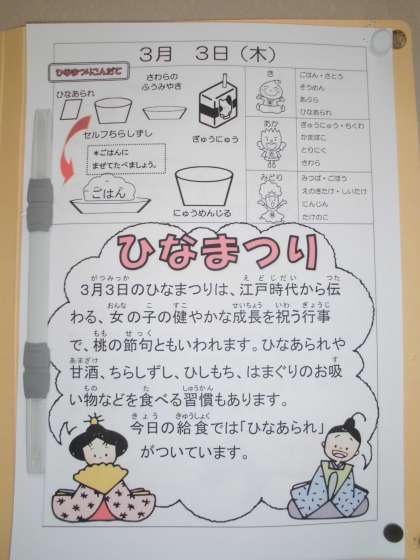 3月 3日(木)
ひなまつりこんだて
ひなあられ
さわらの
ふうみやき
ぎゅうにゅう
セルフちらしずし
*ごはんに
まぜてたべましょう。
ごはん
にゅうめんじる
き
ごはん・さとう
そうめん
あぶら
ひなあられ
あか
ぎゅうにゅう・ちくわ
かまぼこ
とりにく
さわら
みどり
みつば・ごぼう
えのきたけ・しいたけ
にんじん
たけのこ
ひなまつり
がつみっか えどじだい つた
3月3日のひなまつりは、江戸時代から伝
おんな こ すこ せいちょう いわ ぎょうじ
わる、女の子の健やかな成長を祝う行事
もも せっく
で、桃の節句ともいわれます。ひなあられや
あまざけ す
甘酒、ちらしずし、ひしもち、はまぐりのお吸
もの た しゅうかん
い物などを食べる習慣もあります。
きょう きゅうしょく
今日の給食では「ひなあられ」
がついています。